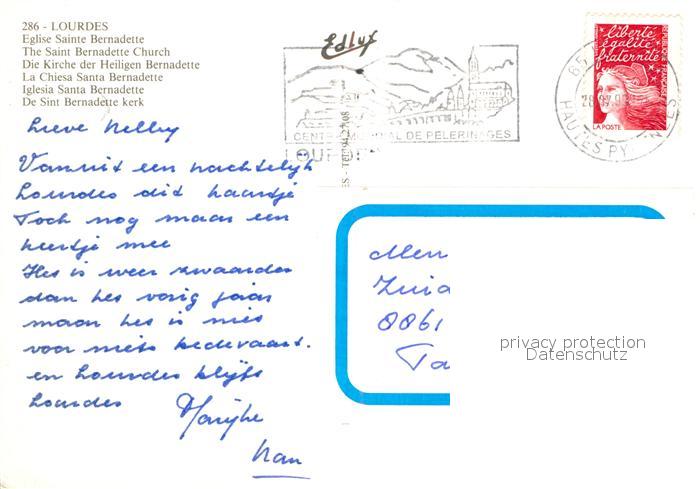 286 - LOURDES
Eglise Sainte Bernadette
The Saint Bernadette Church
Die Kirche der Heiligen Bernadette
La Chiesa Santa Bernadette
Iglesia Santa Bernadette
De Sint Bernadette kerk
Edlux
liberté
égalité
fraternité
RÉPUBLIQUE FRANÇAISE
LA POSTE
HAUTES PYRENEES
CENTRE MONDIAL DE PELERINAGES
LOURDES
Lieve Nelly
Vanuit een nachtelijk
Lourdes dit kaartje
Toch nog maar een
keertje mee
Het is weer zwaarder
dan het vorig jaar
maar het is niet
voor niets bedevaart.
en Lourdes blijft
Lourdes
Marijke
Men
Zuid
8061
Ta
privacy protection
Datenschutz